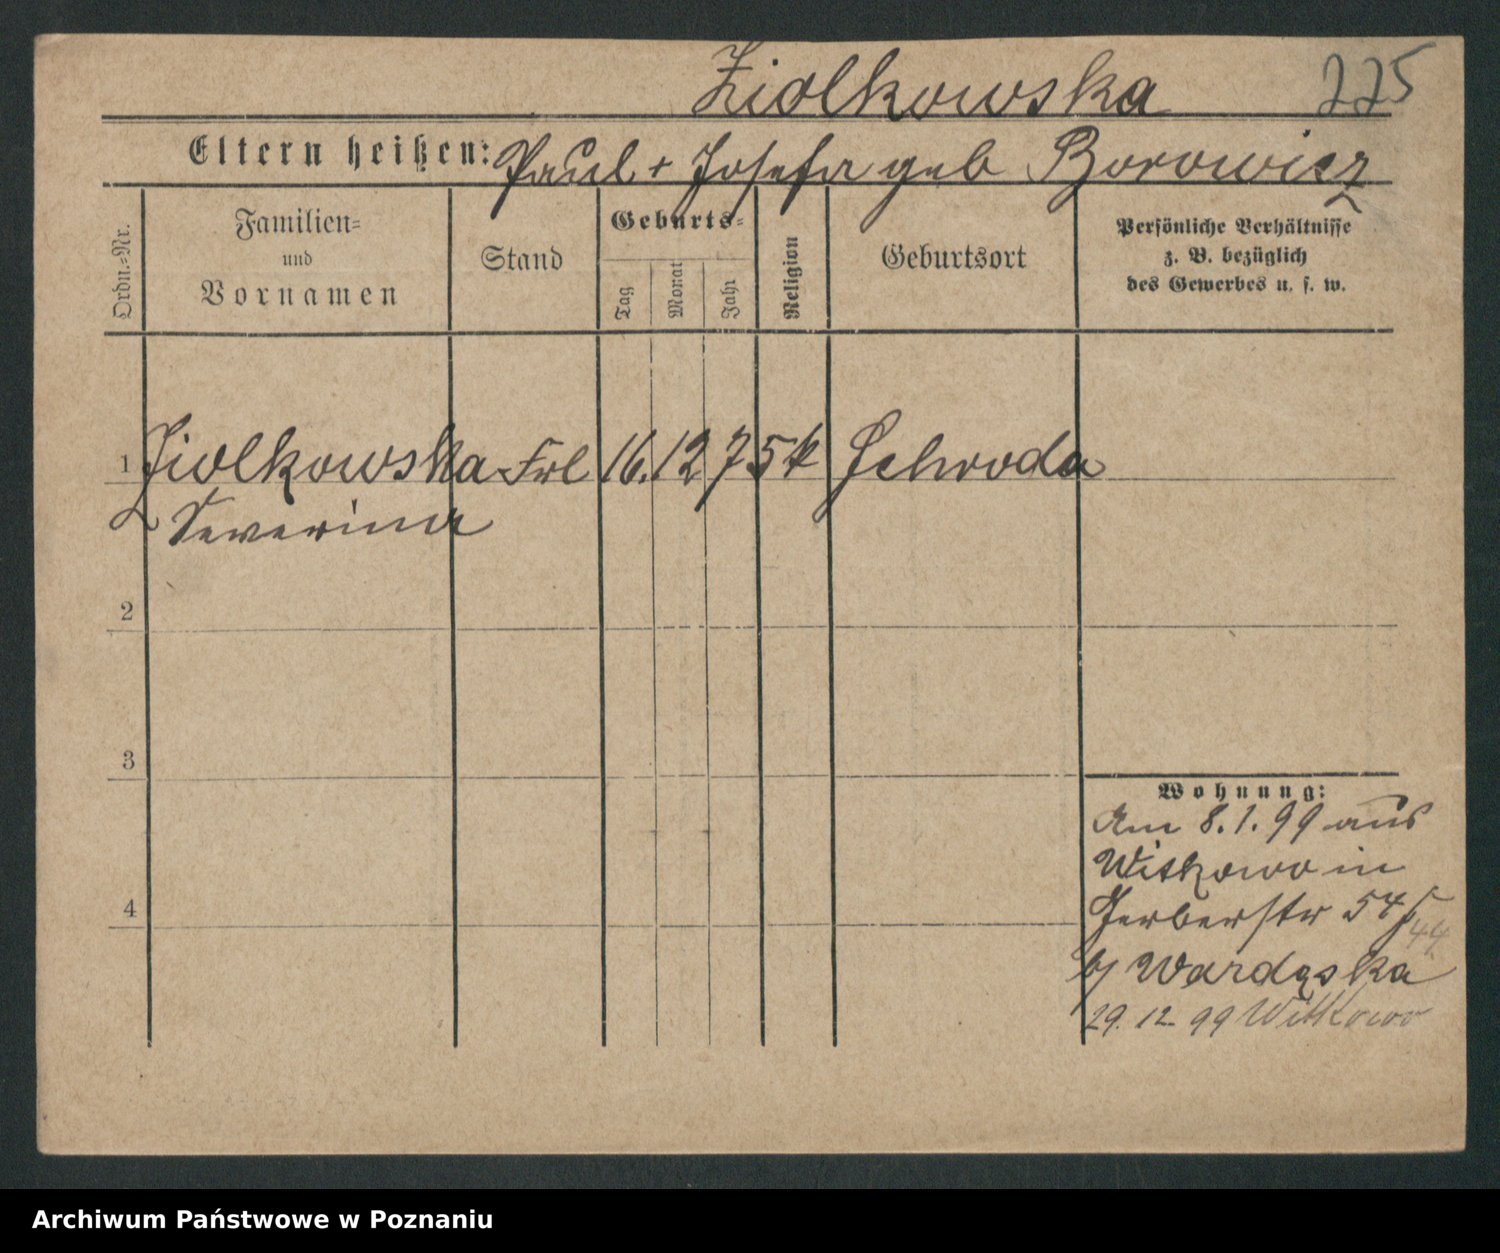 Ziolkowska 225
Eltern heißen: Paul + Josefa geb Borowicz
Ordn.-Nr.
Familien-
und
Vornamen
Stand
Geburts-
Tag
Monat
Jahr
Religion
Geburtsort
Persönliche Verhältnisse
z. B. bezüglich
des Gewerbes u. s. w.
1 Ziolkowska Frl 16. 12 75 k Schroda
Severina
2
3
4
Wohnung:
Am 8.1.99 aus
Witkowo in
Gerberstr 54
b/ Wardęska
29. 12 99 Witkowo
Archiwum Państwowe w Poznaniu